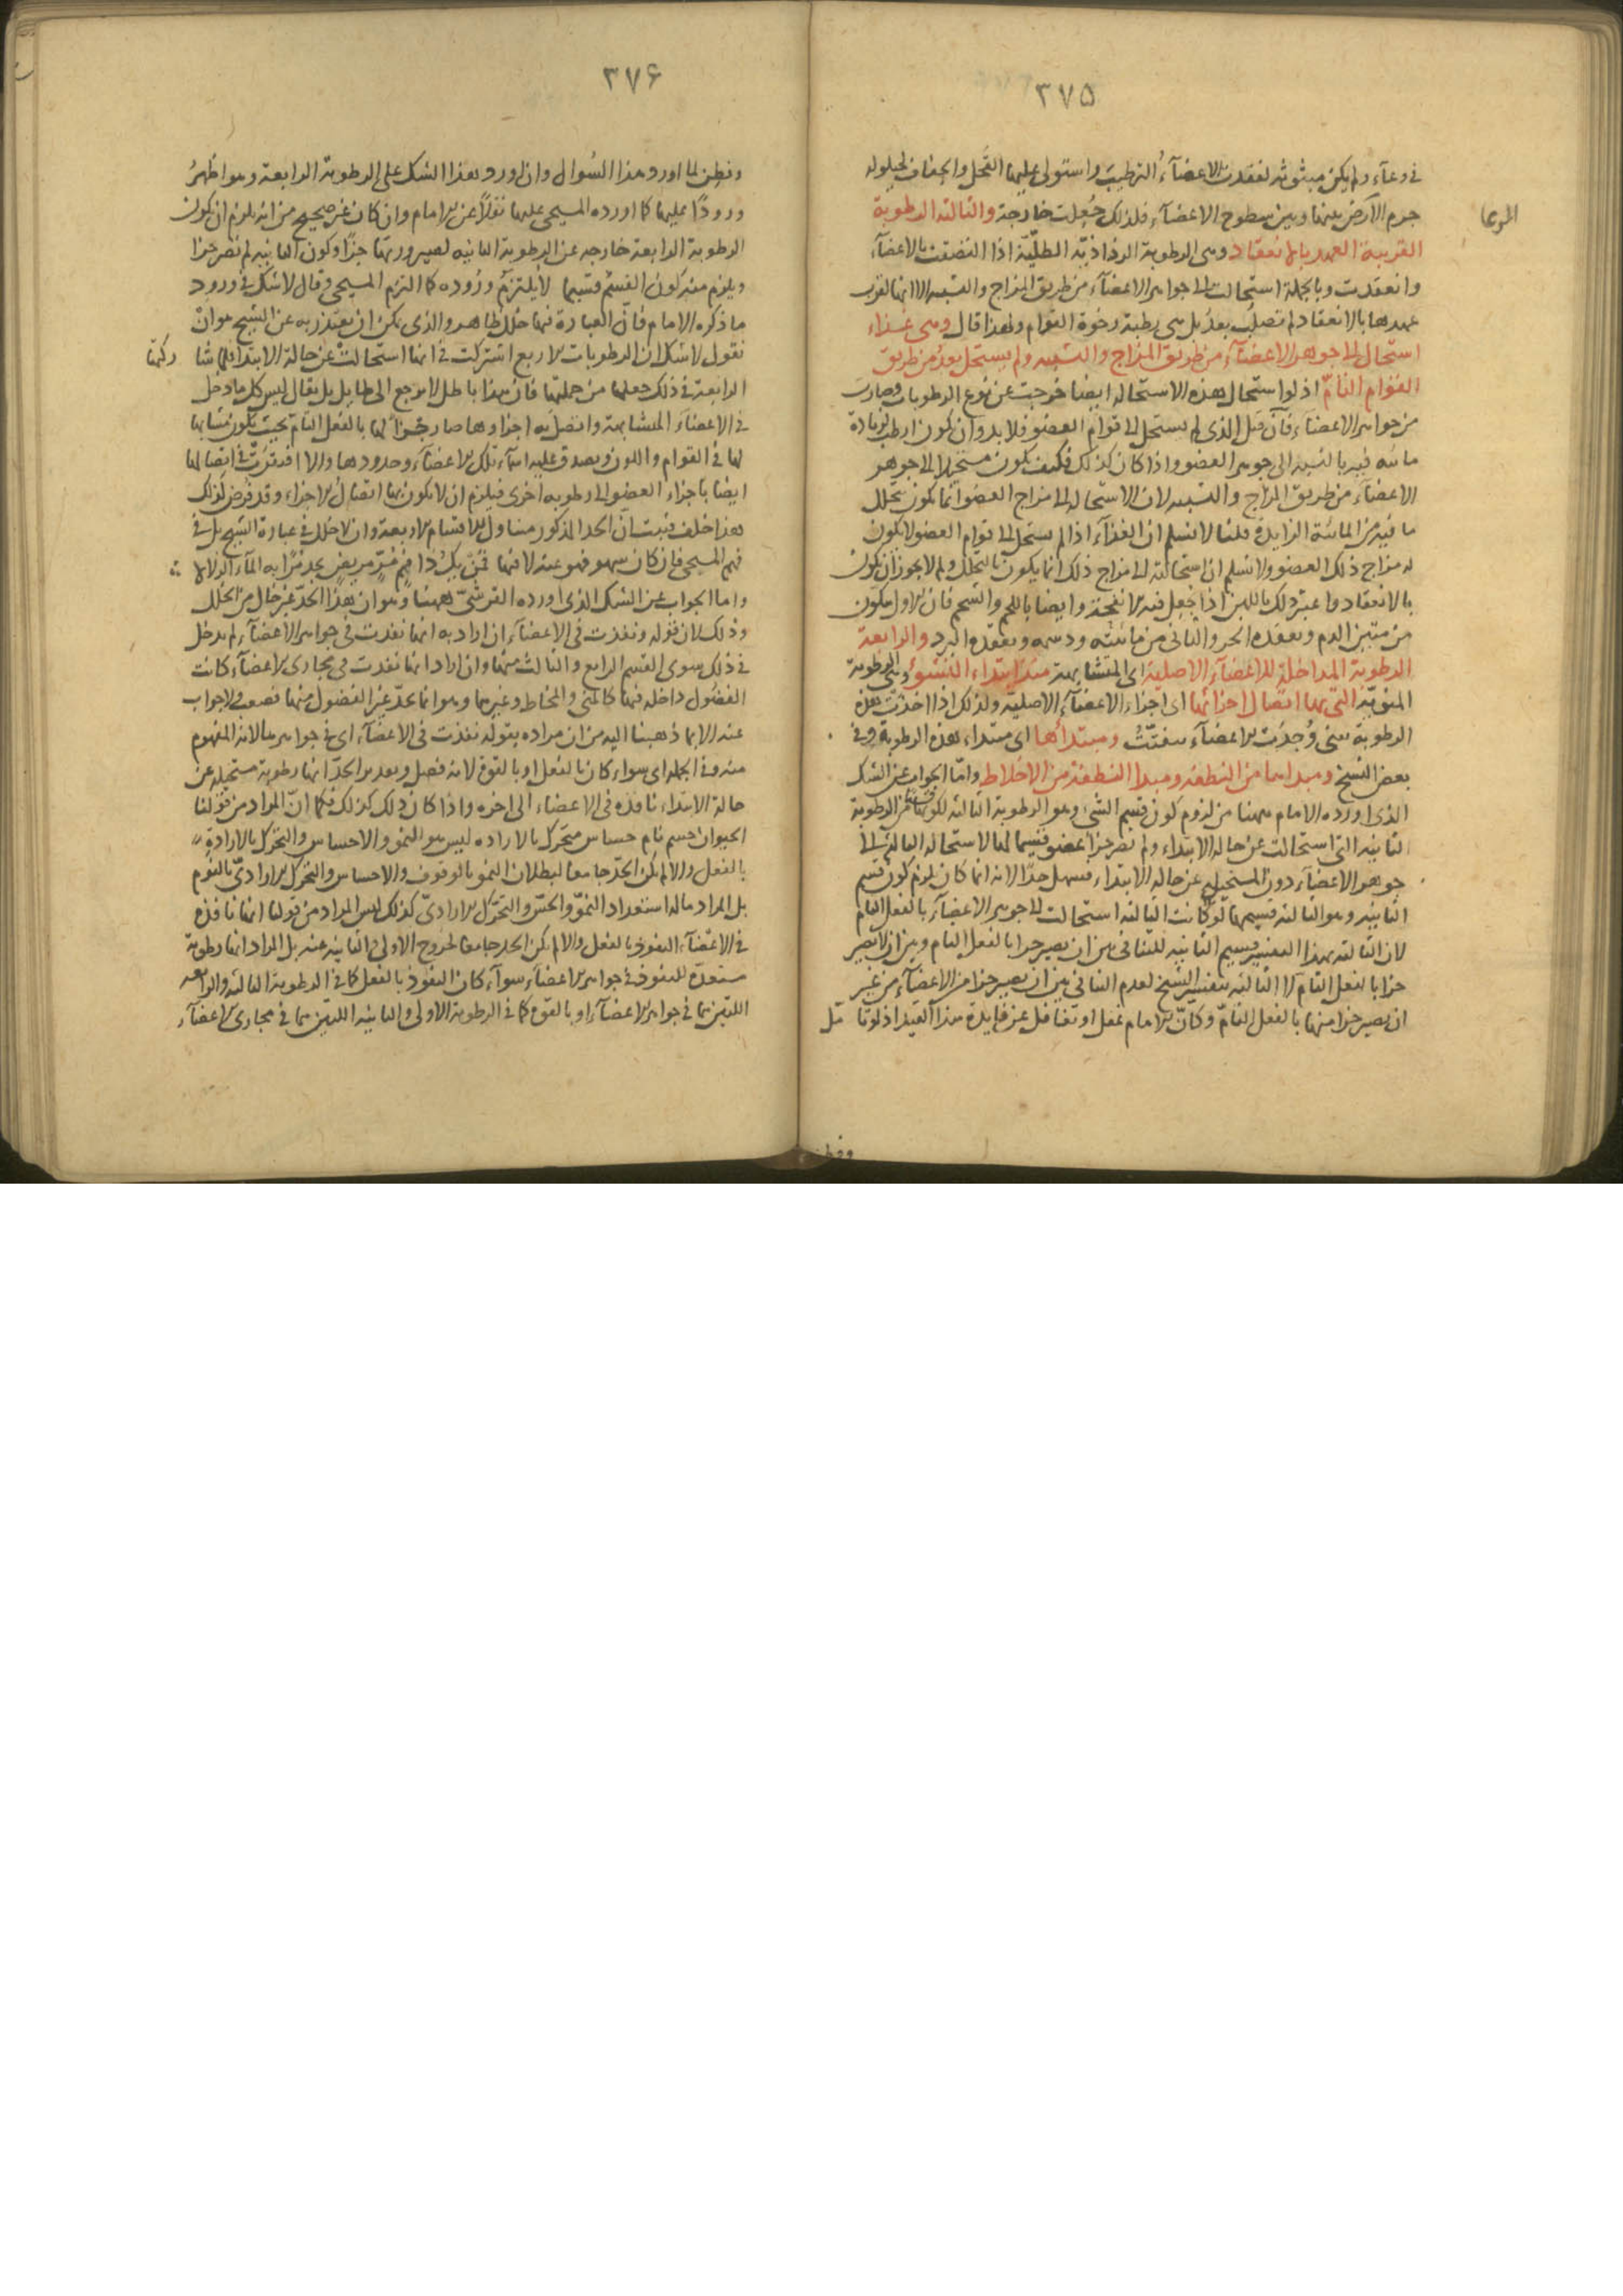 ٣٧٥
فى وعآء ولم يكن مبثوثه لفقدت الاعضآءُ الترطيبَ واستولى عليها القحل والجفاف لحيلوله
جرم الارض بينها وبين سطوح الاعضآء فلذلك جُعِلت خارجة والثالثه الرطوبة
القريبة العهد بالانعقاد وهى الرطوبة الرذاذيّه الطلّيّة اذا التصقت بالاعضآء
وانعقدت وبالجملة استحالت الى جواهر الاعضآء من طريق المزاج والتشبيه الا انها لقرب
عهدها بالانعقاد لم تصلُب بعدُ بل هى رطبة رخوة القوام ولهذا قال وهى غذاء
استحال الى جوهر الاعضآء من طريق المزاج والتشبيه ولم يستحل بعدُ من طريق
القوام التامّ اذ لو استحال هذه الاستحاله ايضا خرجت عن نوع الرطوبات وصارت
من جواهر الاعضآء فآن قيل الذى لم يستحل الى قوام العضو فلا بد وان يكون ارطب لزيادة
مائيه فيه بالنسبه الى جوهر العضو واذا كان كذلك فكيف يكون مستحيلا الى جوهر
الاعضآء من طريق المزاج والتشبيه لان الاستحاله الى مزاج العضو انما يكون بتحلل
ما فيه من المائيّه الزايدة قلنا لا نسلم ان الغذآء اذا لم يستحل الى قوام العضو لا يكون
له مزاج ذلك العضو ولا نسلم ان استحالته الى مزاج ذلك انما يكون بالتحلّل ولم لا يجوز ان يكون
بالانعقاد واعتبر ذلك باللبن اذا جُعِل فيه الانفحة وايضا باللحم والشحم فان الاول يتكون
من متين الدم ويعقده الحر والثانى من مائيّته ودسمه ويعقده البرد والرابعة
الرطوبة المداخلة للاعضآء الاصلية اى المتشابهة منذ ابتداء النشوُ وهى الرطوبة
المنويّة التى بها اتصال اجزائها اى اجزاء الاعضآء الاصليّة ولذلك اذا اخذت هذه
الرطوبة تفنى وُجِدَت الاعضآء تتفتّتُ ومبتدأُها اى مبتداء هذه الرطوبة وفى
بعض النسخ ومبداها من النطفه ومبدا النطفة من الاخلاط وامّا الجواب عن الشك
الذى اورده الامام ههنا من لزوم كون قسيم الشئ وهو الرطوبة الثالثه من الرطوبة
الثانيه التى استحالت عن حالة الابتداء ولم تصر جزأ عضو قسيما لها لاستحاله الثالثه الى
جوهر الاعضآء دون المستحيل عن حالة الابتداء فسهل جدّا لانه انما كان يلزم كون قسم
الثانيه وهو الثالثه قسيمها لو كانت الثالثه استحالت الى جوهر الاعضآء بالفعل التام
لان الثالثه بهذا التفسير قسيم الثانيه للتنافى بين ان يصير جزا بالفعل التام وبين ان لا يصير
جزا بالفعل التام لا الثالثه بتفسير الشيخ لعدم التنافى بين ان يصير جزا من الاعضآء من غير
ان يصير جزا منها بالفعل التامّ وكانّ الامام غفل او تغافل عن فايدة هذا القيد اذ لو تامّل
٣٧۶
وفطِن لما اورد هذا السُوال وان اورد هذا الشك على الرطوبة الرابعة وهو اظهرُ
ورودًا عليها كما اورده المسيحى عليها نقلًا عن الامام وان كان غير صحيح من انه يلزم ان يكون
الرطوبة الرابعة خارجه عن الرطوبة الثانيه لصيرورتها جزًا وكون الثانيه لم تصر جزا
ويلزم منه كون القسم قسيما لا يلتزم وروده كما التزم المسيحى وقال لا شك فى ورود
ما ذكره الامام فانّ العبارة فيها خلل ظاهر والذى يمكن ان يعتذر به عن الشيخ هو انْ
نقول لا شك ان الرطوبات الاربع اشتركت فى انها استحالتْ عن حالة الابتدا فلما شا ركتها
الرابعة فى ذلك جعلها من جملتها فانّ هذا باطل لا يرجع الى طايل بل يقال ليس كل ما دخل
فى الاعضآء المتشابهة واتصل به اجزاوها صار جزأً لها بالفعل التام بحيث يكون مُشابها
لها فى القوام واللون ويصدق عليه اسمآء تلك الاعضآء وحدودها والا افتقرت فى اتصالها
ايضا باجزاء العضو الى رطوبه اخرى فيلزم ان لا يكون بها اتصالُ الاجزاء وقد فُرِض كذلك
هذا خلف فثبت انّ الحد المذكور متناول للاقسام الاربعة وان لا خلل فى عبارة الشيخ بل فى
فهم المسيحى فان كان سهو فهو عنده لا فيها فمَن يكُ ذا فمٍ مُرٍّ مريضٍ يجد مُرًّا به المآءَ الزُلالا
واما الجواب عن الشك الذى اورده القرشىّ ههنا وهو ان هذا الحدّ غير خال من الخلل
وذلك لان قوله ونفذت فى الاعضآء ان اراد به انها نفذت فى جواهر الاعضآء لم يدخل
فى ذلك سوى القسم الرابع والثالث منها وان اراد انها نفذت فى مجارى الاعضآء كانت
الفضُول داخله فيها كالمنى والمخاط وغيرهما وهو انما يحدّ غير الفضول منها فصعب ولا جواب
عنه الا بما ذهبنا اليه من ان مراده بقوله نفذت فى الاعضآء اى فى جواهرها لانه المفهوم
منه وفى الجمله اى سواء كان بالفعل او بالقوة لانه فصل وبعد الحدّ انها رطوبة مستحيله عن
حالة الابتداء نافذه فى الاعضاء الى اخره واذا كان ذلك كذلك فكما انّ المراد من قولنا
الحيوان جسم نام حساس متحرّك بالاراده ليس هو النمو والاحساس والتحرّك بالارادة
بالفعل والا لم يكن الحدّ جامعًا لبطلان النمو بالوقوف والاحساس والتحرّك الارادىّ بالنوم
بل المراد ما له استعداد النموّ والحسّ والتحرّك الارادىّ كذلك ليس المراد من قولنا انها نافذه
فى الاعضآء النفوذ بالفعل والا لم يكن الحد جامعا لخروج الاولى والثانيه عنه بل المراد انها رطوبة
مستعدّة للنفوذ فى جواهر الاعضآء سوآء كان النفوذ بالفعل كما فى الرطوبة الثالثه والرابعه
اللتين هما فى جواهر الاعضآء او بالقوة كما فى الرطوبة الاولى والثانيه اللتين هما فى مجارى الاعضآء